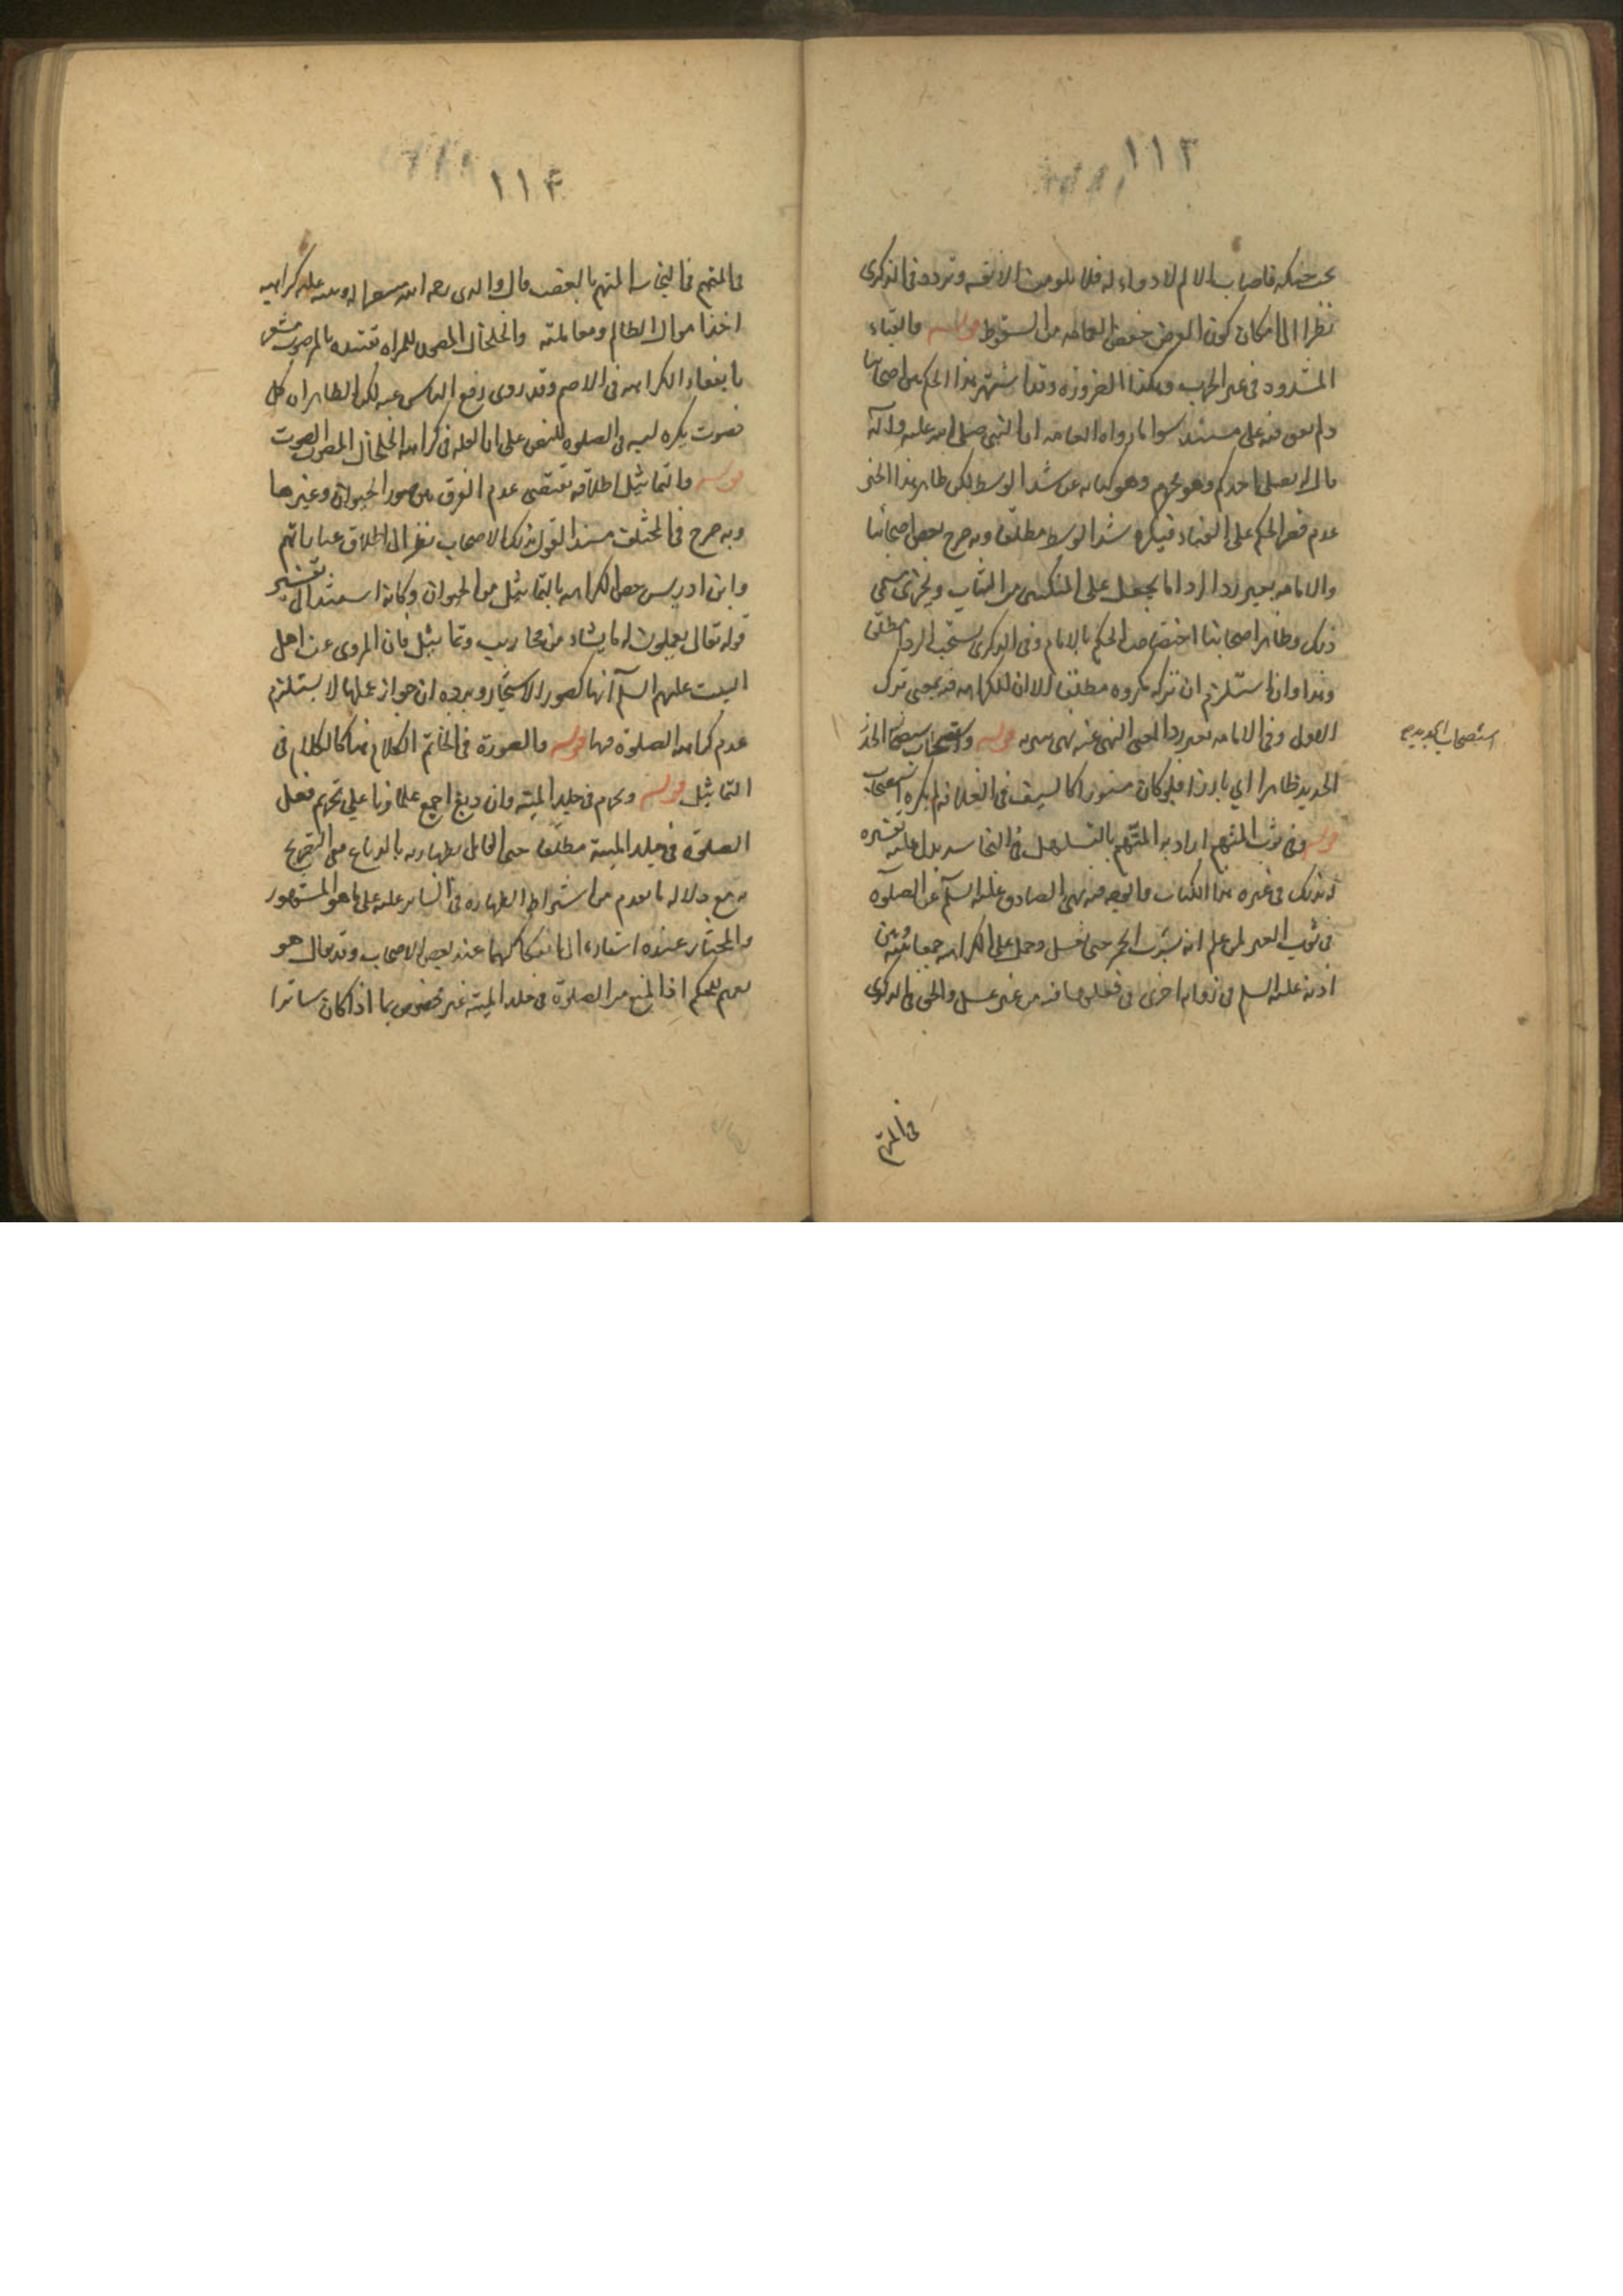 ١١٣
حنكه فاصابه الم لا دواء له فلا يلومن الا نفسه وتردد في الذكرى
نظرا الى امكان كون الغرض حفظ العمامه من السقوط قوله والقباء
المشدود في غير الحرب وهكذا الضرورة وقد اشتهر هذا الحكم بين اصحابنا
ولم نقف فيه على مستند سوا ما رواه العامه ان النبي صلى الله عليه وآله
قال لا يصلي احدكم وهو محزم وهو كنايه عن شد الوسط لكن ظاهر هذا الخبر
عدم قصر الحكم على القباء فيكره شد الوسط مطلقا وبه صرح بعض اصحابنا
والامامه بغير رداء الرداء ما يجعل على المنكبين من الثياب ويجزي مسمى
ذلك وظاهر اصحابنا اختصاص الحكم بالامام وفي الذكرى يستحب الرداء مطلقا
وهذا وان استلزم ان تركه مكروه مطلقا الا ان الكراهه فيه بمعنى ترك
الاولى وفي الامامه بغير رداء بمعنى النهي عنه قوله واستصحاب
الحديد ظاهرا اي بارزا فلو كان مستورا كالسيف في الغلاف لم يكره استصحابه
قوله وفي ثوب المتهم اراد به المتهم بالتساهل في النجاسه يدل عليه تقييده
له بذلك في غيره هذا الكتاب والوجه فيه نهي الصادق عليه السلم عن الصلوة
في ثوب الغير لمن علم انه يشرب الخمر حتى يغسل وحمل على الكراهه جمعا بينه وبين
اذنه عليه السلم في رواية اخرى في فعلى من غير غسل والحق في الذكرى
في المتهم
استصحاب الحديد
١١٤
والمتهم في النجاسة المتهم بالغصب قال والدي رحمه الله كراهيه
اخذ اموال الظالم ومعاملته والخلخال المصوت للمراة تقييده بالمصوت مشعر
بانتفاء الكراهه في الاصم وقد روى رفع الباس عنه لكن الظاهر ان كل
مصوت يكره لبسه في الصلوة للنص على ان العله في كراهه الخلخال المصوت الصوت
قوله والتماثيل اطلاقه يقتضي عدم الفرق بين صور الحيوان وغيرها
وبه صرح في المختلف مسندا القول بذلك الى الاصحاب نظرا الى اطلاق عباراتهم
وابن ادريس خص الكراهه بالتماثيل من الحيوان وكانه استند الى تفسير
قوله تعالى يعملون له ما يشاء من محاريب وتماثيل فان المروي عن اهل
البيت عليهم السلم انها كصور الاشجار ويرده ان جواز عملها لا يستلزم
عدم كراهه الصلوة فيها قوله والصورة في الخاتم الكلام فيها كالكلام في
التماثيل قوله ويحرم في جلد الميته وان دبغ اجمع علماؤنا على تحريم فعل
الصلوة في جلد الميتة مطلقا حتى القائل بطهارته بالدباغ التصريح
به مع دلاله ما تقدم من اشتراط الطهارة في الساتر عليه على ما هو المشهور
والمختار عنده استفادة الى انفكاكهما عند بعض الاصحاب وقد يقال هو
تعميم للحكم اذ المنع من الصلوة في جلد الميته غير مخصوص بما اذا كان ساترا